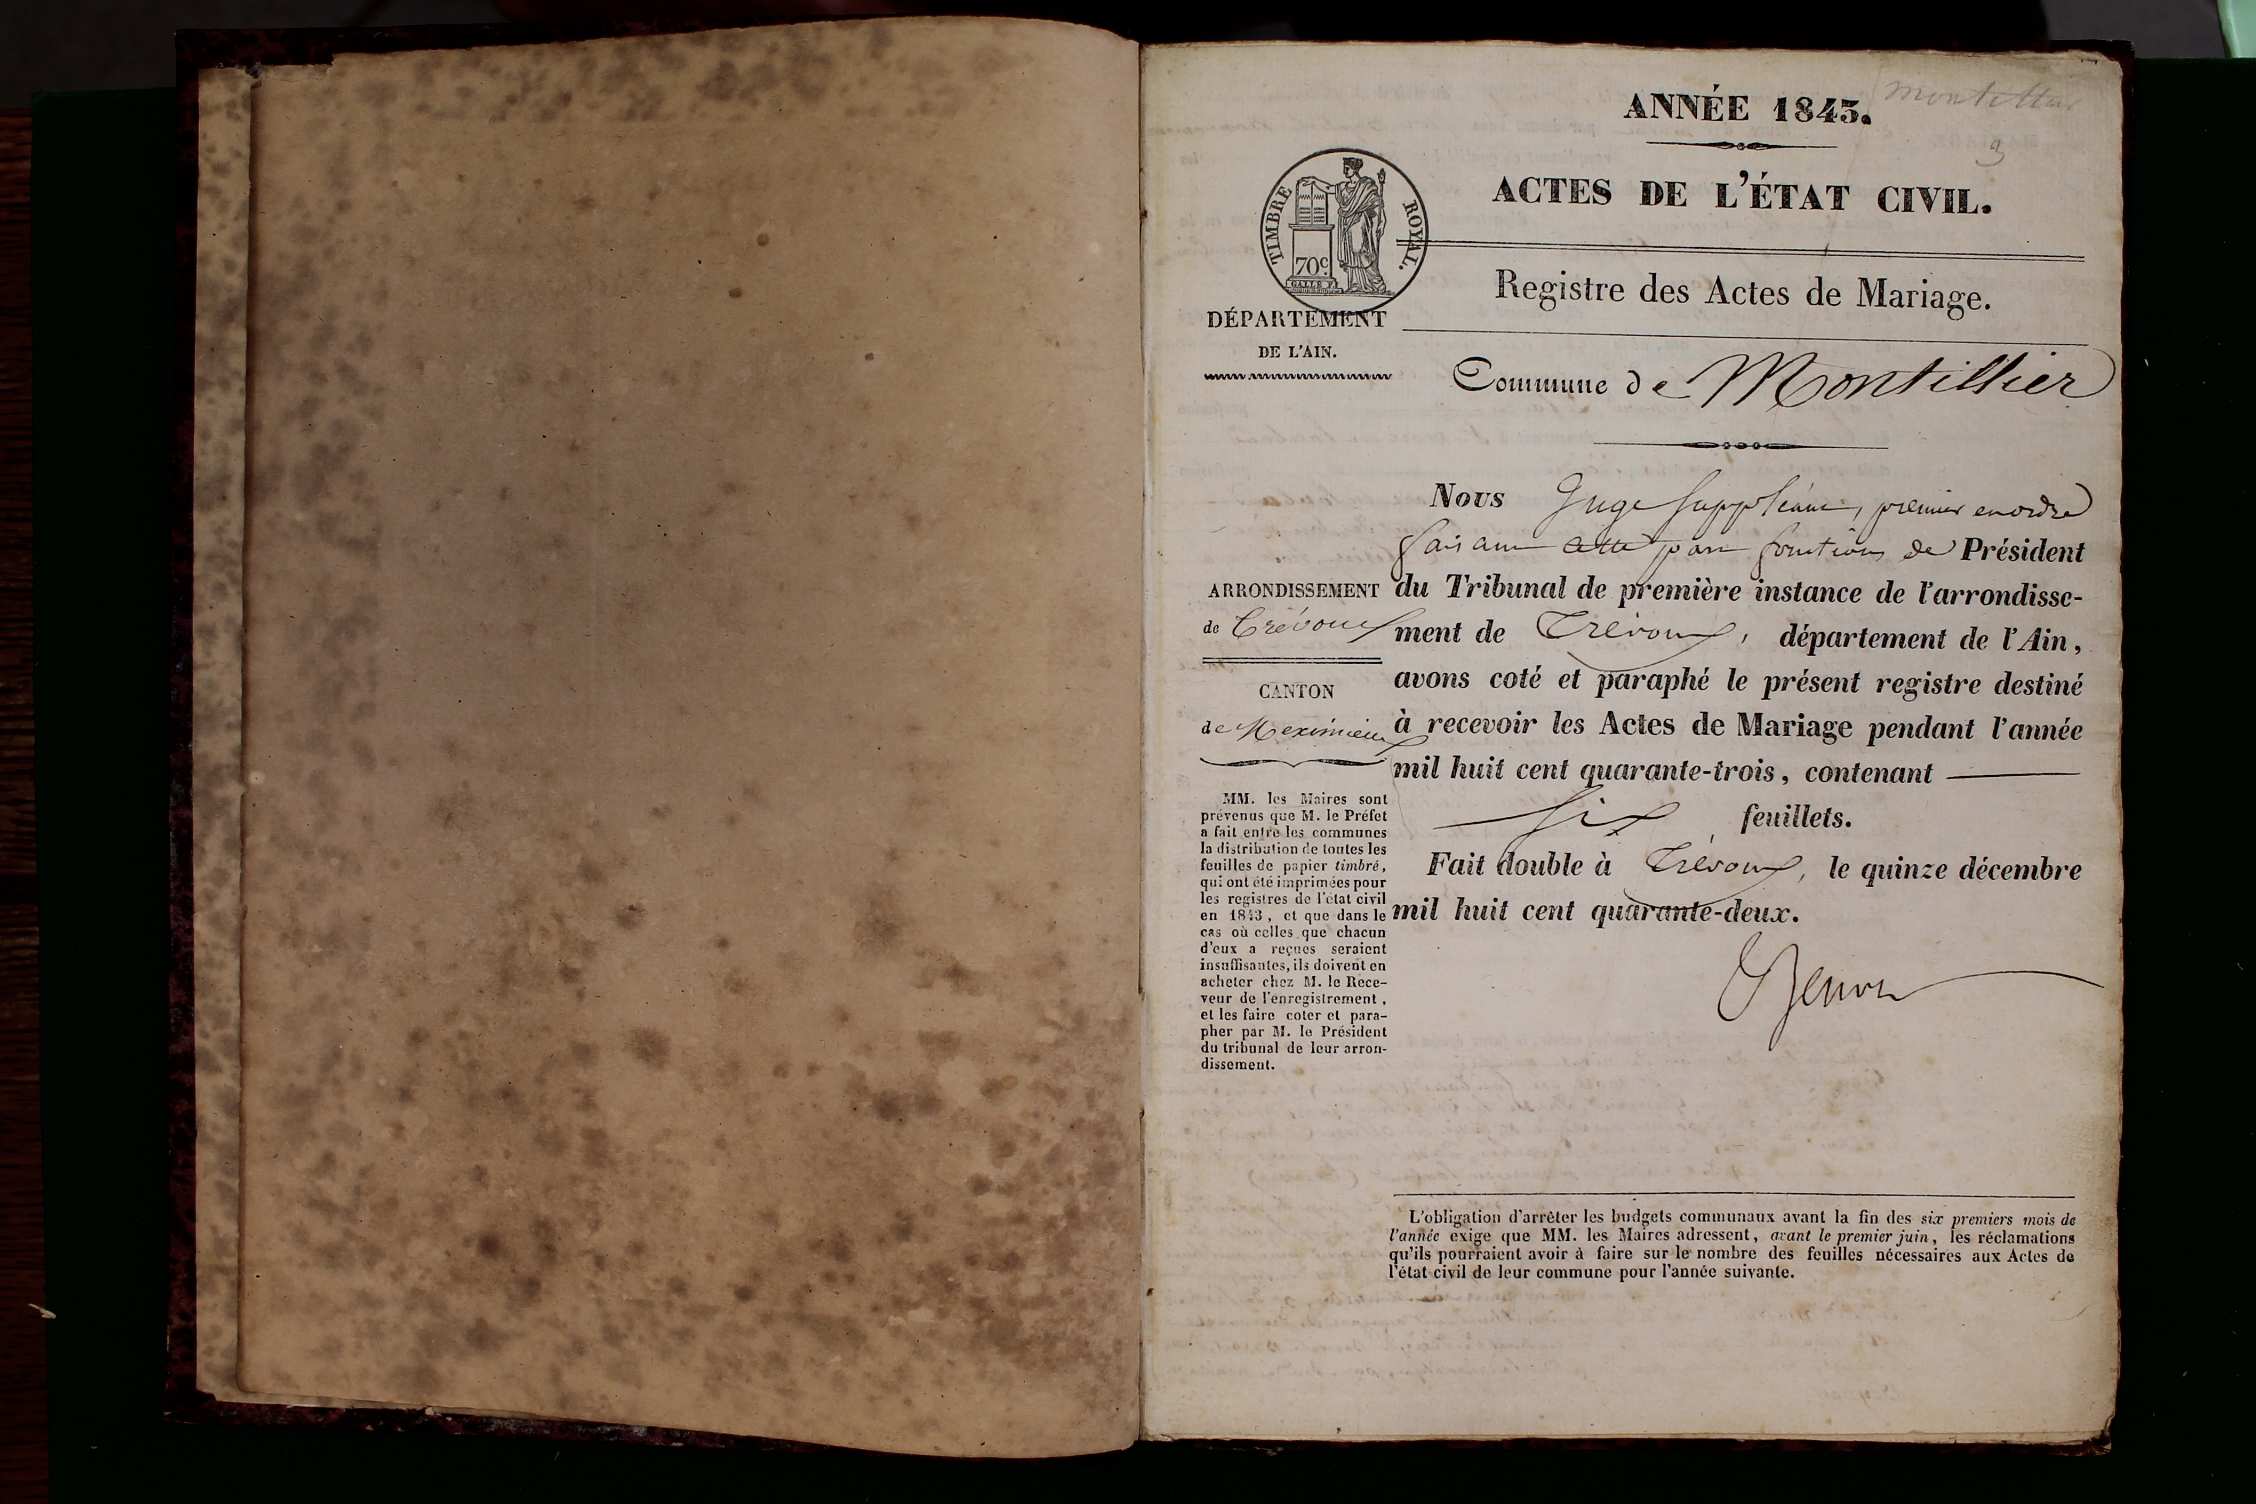 montellier
3
ANNÉE 1843.
ACTES DE L'ÉTAT CIVIL.
TIMBRE ROYAL.
70c.
Registre des Actes de Mariage.
DÉPARTEMENT
DE L'AIN.
Commune de Montillier
Nous Juge suppléant, premier en ordre
faisant fonctions de Président
du Tribunal de première instance de l'arrondisse-
ment de Trévoux, département de l'Ain,
avons coté et paraphé le présent registre destiné
à recevoir les Actes de Mariage pendant l'année
mil huit cent quarante-trois, contenant
six feuillets.
Fait double à Trévoux, le quinze décembre
mil huit cent quarante-deux.
ARRONDISSEMENT
de Trévoux
CANTON
de Meximieux
MM. les Maires sont
prévenus que M. le Préfet
a fait entre les communes
la distribution de toutes les
feuilles de papier timbré,
qui ont été imprimées pour
les registres de l'état civil
en 1843, et que dans le
cas où celles que chacun
d'eux a reçues seraient
insuffisantes, ils doivent en
acheter chez M. le Rece-
veur de l'enregistrement,
et les faire coter et para-
pher par M. le Président
du tribunal de leur arron-
dissement.
L'obligation d'arrêter les budgets communaux avant la fin des six premiers mois de
l'année exige que MM. les Maires adressent, avant le premier juin, les réclamations
qu'ils pourraient avoir à faire sur le nombre des feuilles nécessaires aux Actes de
l'état civil de leur commune pour l'année suivante.